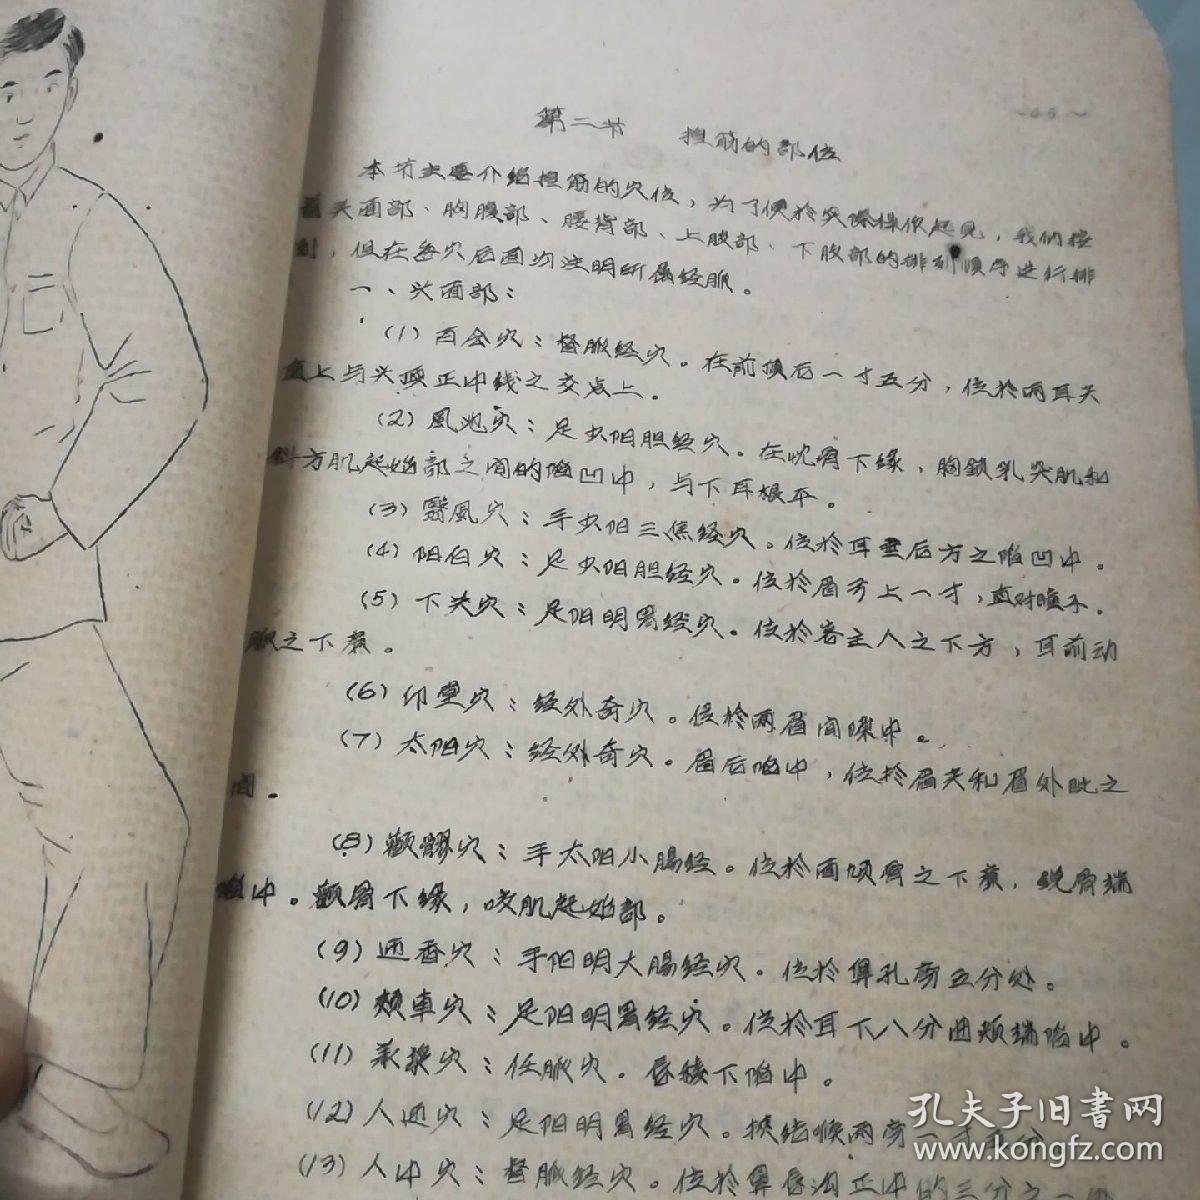 ~65~
第二节 捏筋的部位
本节主要介绍捏筋的穴位，为了便於实际操作起见，我们按
头面部、胸腹部、腰背部、上肢部、下肢部的排列顺序进行排
列，但在每穴后面均注明所属经脈。
一、头面部：
(1) 百会穴：督脈经穴。在前顶后一寸五分，位於两耳尖
直上与头顶正中线之交点上。
(2) 風池穴：足少阳胆经穴。在枕骨下缘，胸鎖乳突肌和
斜方肌起始部之间的陷凹中，与下耳根平。
(3) 翳風穴：手少阳三焦经穴。位於耳垂后方之陷凹中。
(4) 阳白穴：足少阳胆经穴。位於眉方上一寸，直对瞳子。
(5) 下关穴：足阳明胃经穴。位於客主人之下方，耳前动
脈之下廉。
(6) 印堂穴：经外奇穴。位於两眉间隙中。
(7) 太阳穴：经外奇穴。眉后陷中，位於眉尖和眉外眦之
间。
(8) 颧髎穴：手太阳小腸经。位於面頄骨之下廉，锐骨端
陷中。颧骨下缘，咬肌起始部。
(9) 迎香穴：手阳明大腸经穴。位於鼻孔旁五分处。
(10) 颊車穴：足阳明胃经穴。位於耳下八分曲颊端陷中。
(11) 承漿穴：任脈穴。唇棱下陷中。
(12) 人迎穴：足阳明胃经穴。挟结喉两旁一寸五分
(13) 人中穴：督脈经穴。位於鼻唇沟正中的三分之一
孔夫子旧書网
www.kongfz.com